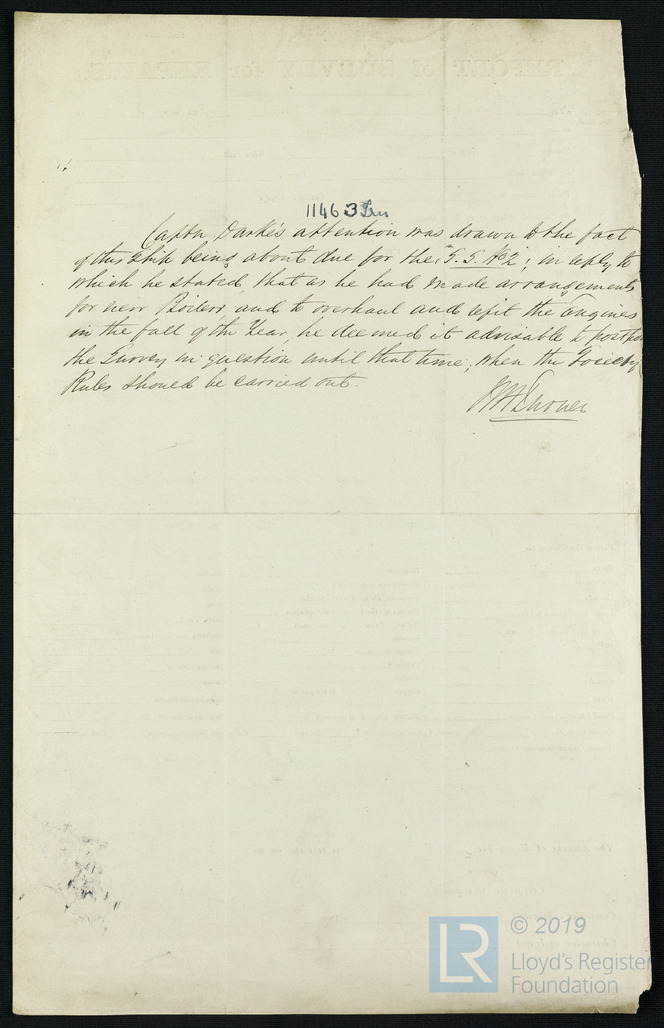 11463 Irn
Captn Darke's attention was drawn to the fact
of this Ship being about due for the "S. S. No 2", in reply to
which he stated, that as he had made arrangements
for new Boilers, and to overhaul and refit the Engines
in the fall of the Year, he deemed it advisable to postpo
the Survey in question until that time, when the Society
Rules should be carried out.
REPORT of SURVEY for REPAIRS,
LR
© 2019
Lloyd's Register
Foundation